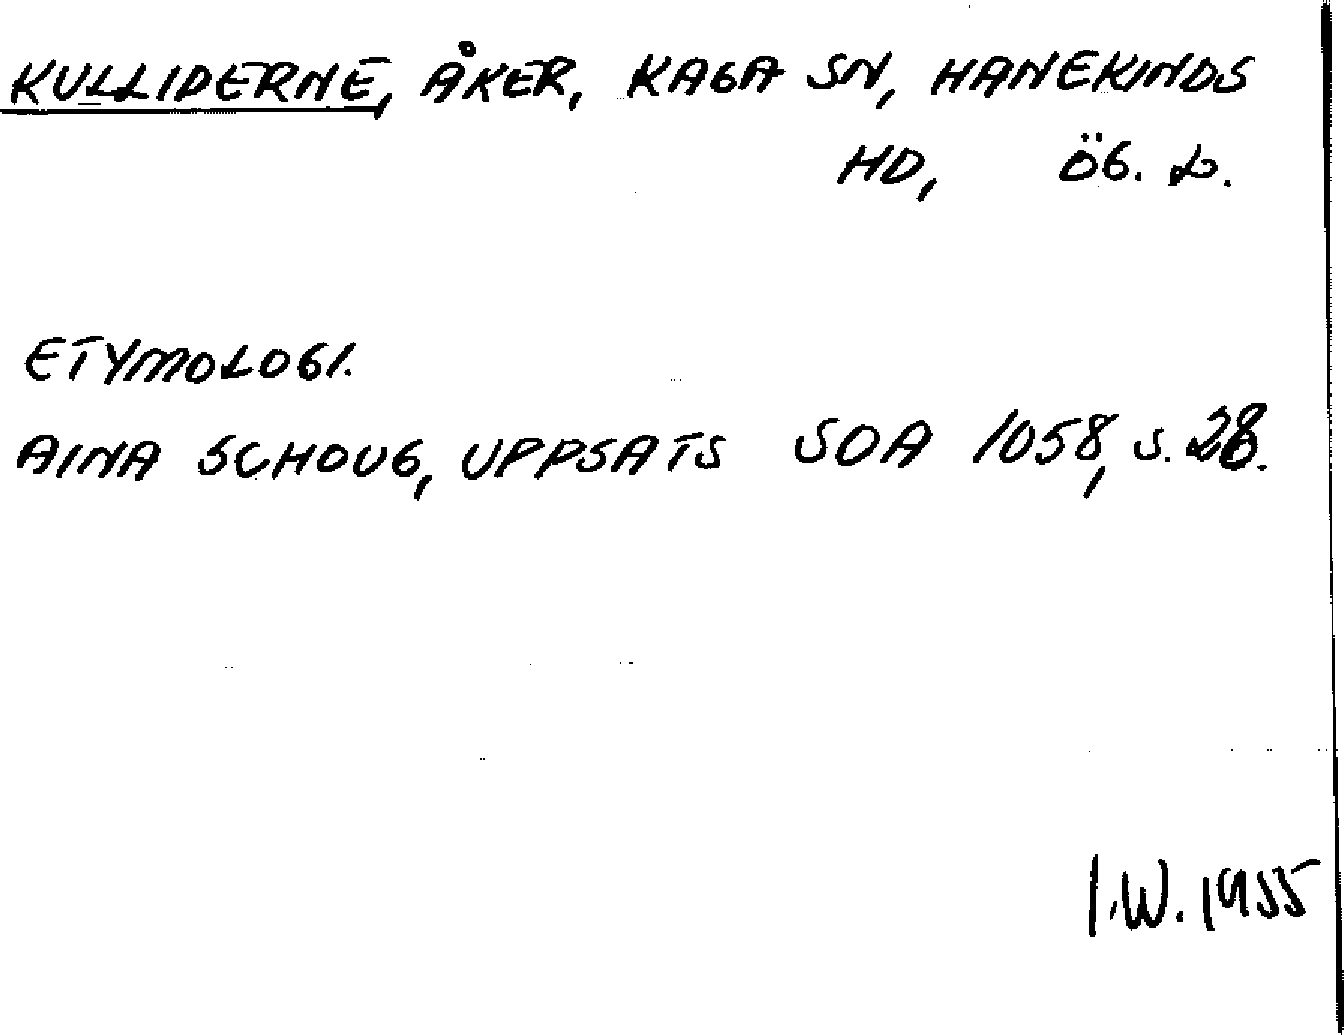 KULLIDERNE, ÅKER, KAGA SN, HANEKINDS
HD, ÖG. L.
ETYMOLOGI.
AINA SCHOUG, UPPSATS SOA 1058, S. 28.
I.W. 1955